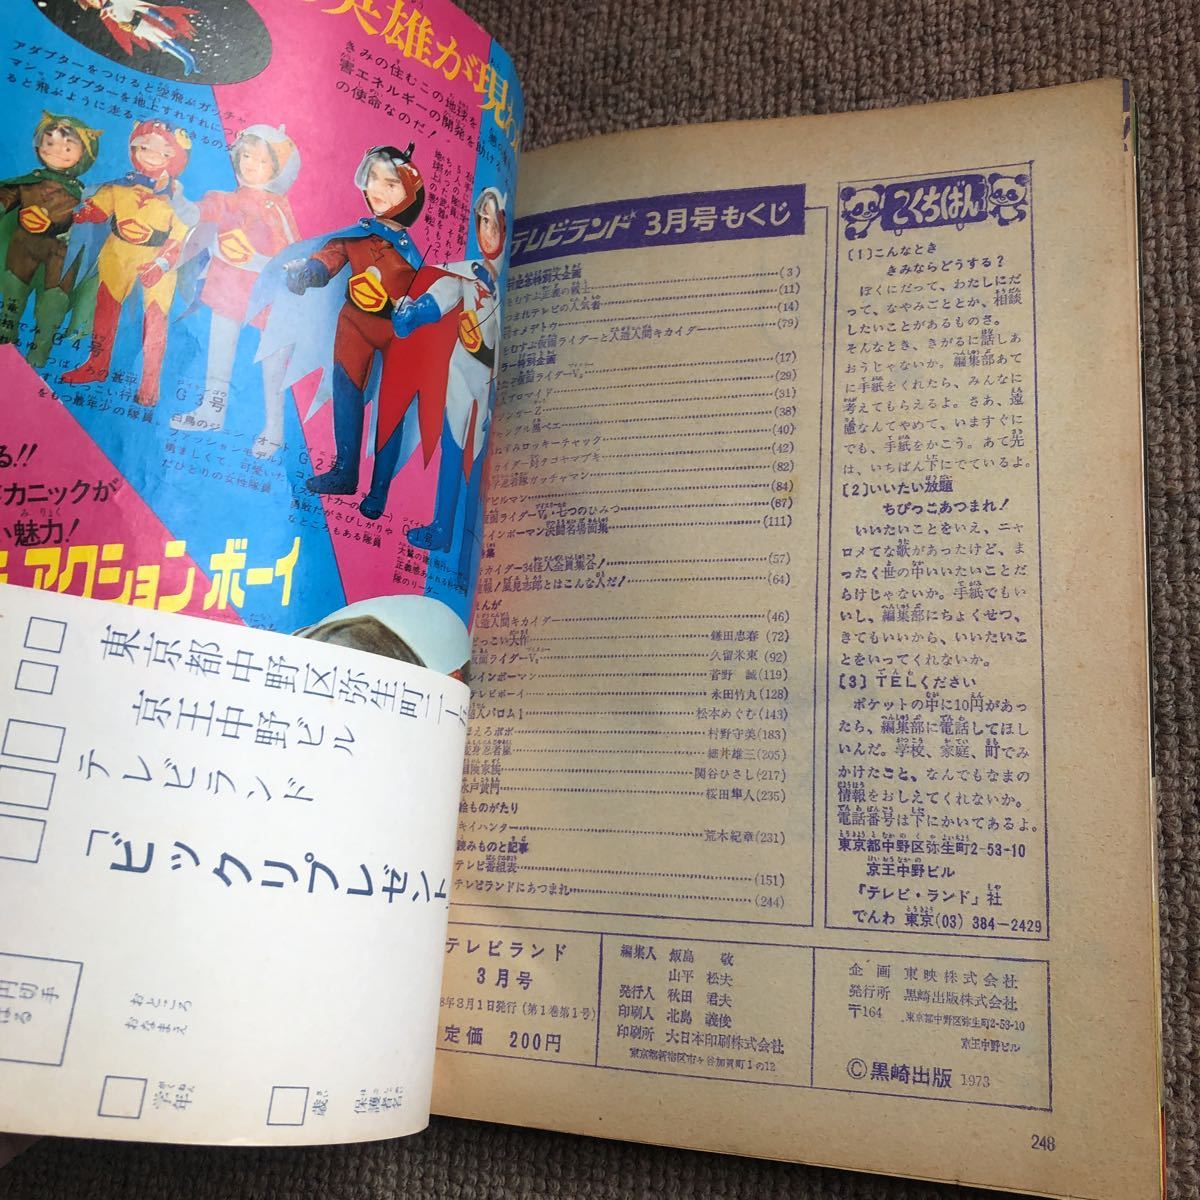 の英雄が現わ
きみの住むこの地球を
害エネルギーの開発を助ける
の使命なのだ！
アダプターをつけると空飛ぶガッチャ
マン。アダプターを地上すれすれにつけ
ると飛ぶように走ることもできるのだ
G4号
つばくろの甚平
すばしっこい行動
をもつ最年少の隊員
G3号
白鳥のジュン（オート
ファッションモデル）
勇ましくて、可愛いた
だひとりの女性隊員
G2号
コンドルのジョー
（スタートカーのレーサー）
勇敢だがさびしがりや
なところもある隊員
G1号
大鷲の健
正義感あふれる科学忍者
隊のリーダー
る!!
カニックが
い魅力！
アクションボーイ
東京都中野区弥生町二丁
京王中野ビル
テレビランド
「ビックリプレゼント
円切手
はる
おところ
おなまえ
学年
歳
保護者名
テレビランド 3月号もくじ
記念特別大企画 (3)
をむすぶ正義の戦士 (11)
つまれテレビの人気者 (14)
オメデトウ
をむすぶ仮面ライダーと人造人間キカイダー (79)
ラー特別企画
たぞ仮面ライダーV3 (17)
ブロマイド (29)
ンガーZ (31)
ャングル黒べエ (38)
ねずみロッキーチャック (40)
カイダー対タコヤマブキ (42)
忍者隊ガッチャマン (82)
ビルマン (84)
仮面ライダーV3・七つのひみつ (87)
レインボーマン決闘名場面集 (111)
特集
カイダー34怪人全員集合！ (57)
報！風見志郎とはこんな人だ！ (64)
まんが
人造人間キカイダー (46)
どっこい大作 鎌田忠春 (72)
仮面ライダーV3 久留米東 (92)
レインボーマン 菅野 誠 (119)
テレビボーイ 永田竹丸 (128)
超人バロム1 松本めぐむ (143)
ほえろボボ 村野守美 (183)
変身忍者嵐 細井雄三 (205)
冒険家族 関谷ひさし (217)
水戸黄門 桜田隼人 (235)
絵ものがたり
キイハンター 荒木紀章 (231)
読みものと記事
テレビ番組表 (151)
テレビランドにあつまれ (244)
こくちばん
〔1〕こんなとき
きみならどうする？
ぼくにだって、わたしにだ
って、なやみごととか、相談
したいことがあるものさ。
そんなとき、きがるに話しあ
おうじゃないか。編集部あて
に手紙をくれたら、みんなに
考えてもらえるよ。さあ、遠
慮なんてやめて、いますぐに
でも、手紙をかこう。あて先
は、いちばん下にでているよ。
〔2〕いいたい放題
ちびっこあつまれ！
いいたいことをいえ、ニャ
ロメてな歌があったけど、ま
ったく世の中いいたいことだ
らけじゃないか。手紙でもい
いし、編集部にちょくせつ、
きてもいいから、いいたいこ
とをいってくれないか。
〔3〕TELください
ポケットの中に10円があっ
たら、編集部に電話してほし
いんだ。学校、家庭、町でみ
かけたこと、なんでもなまの
情報をおしえてくれないか。
電話番号は下にかいてあるよ。
東京都中野区弥生町2-53-10
京王中野ビル
『テレビ・ランド』社
でんわ 東京(03) 384-2429
テレビランド
3月号
8年3月1日発行（第1巻第1号）
定価 200円
編集人 飯島 敬
山平 松夫
発行人 秋田 君夫
印刷人 北島 義俊
印刷所 大日本印刷株式会社
東京都新宿区市ヶ谷加賀町1の12
企画 東映株式会社
発行所 黒崎出版株式会社
〒164 東京都中野区弥生町2-53-10
京王中野ビル
©黒崎出版 1973
248